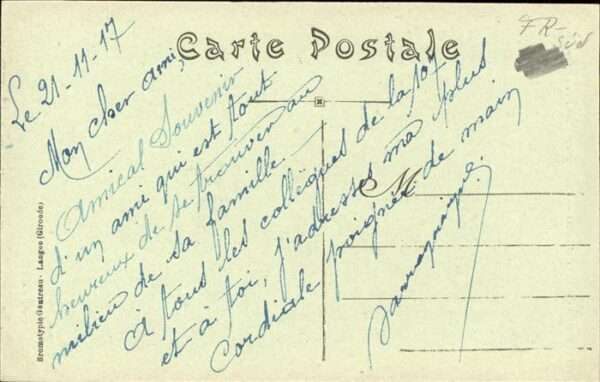 Carte Postale
FR-
sud
Le 21-11-17
Mon cher ami,
Amical Souvenir
d'un ami qui est tout
heureux de se trouver au
milieu de sa famille.
A tous les collègues de la 10t
et à toi, j'adresses ma plus
cordiale poignée de main
M
Bromotypie Gautreau - Langon (Gironde)